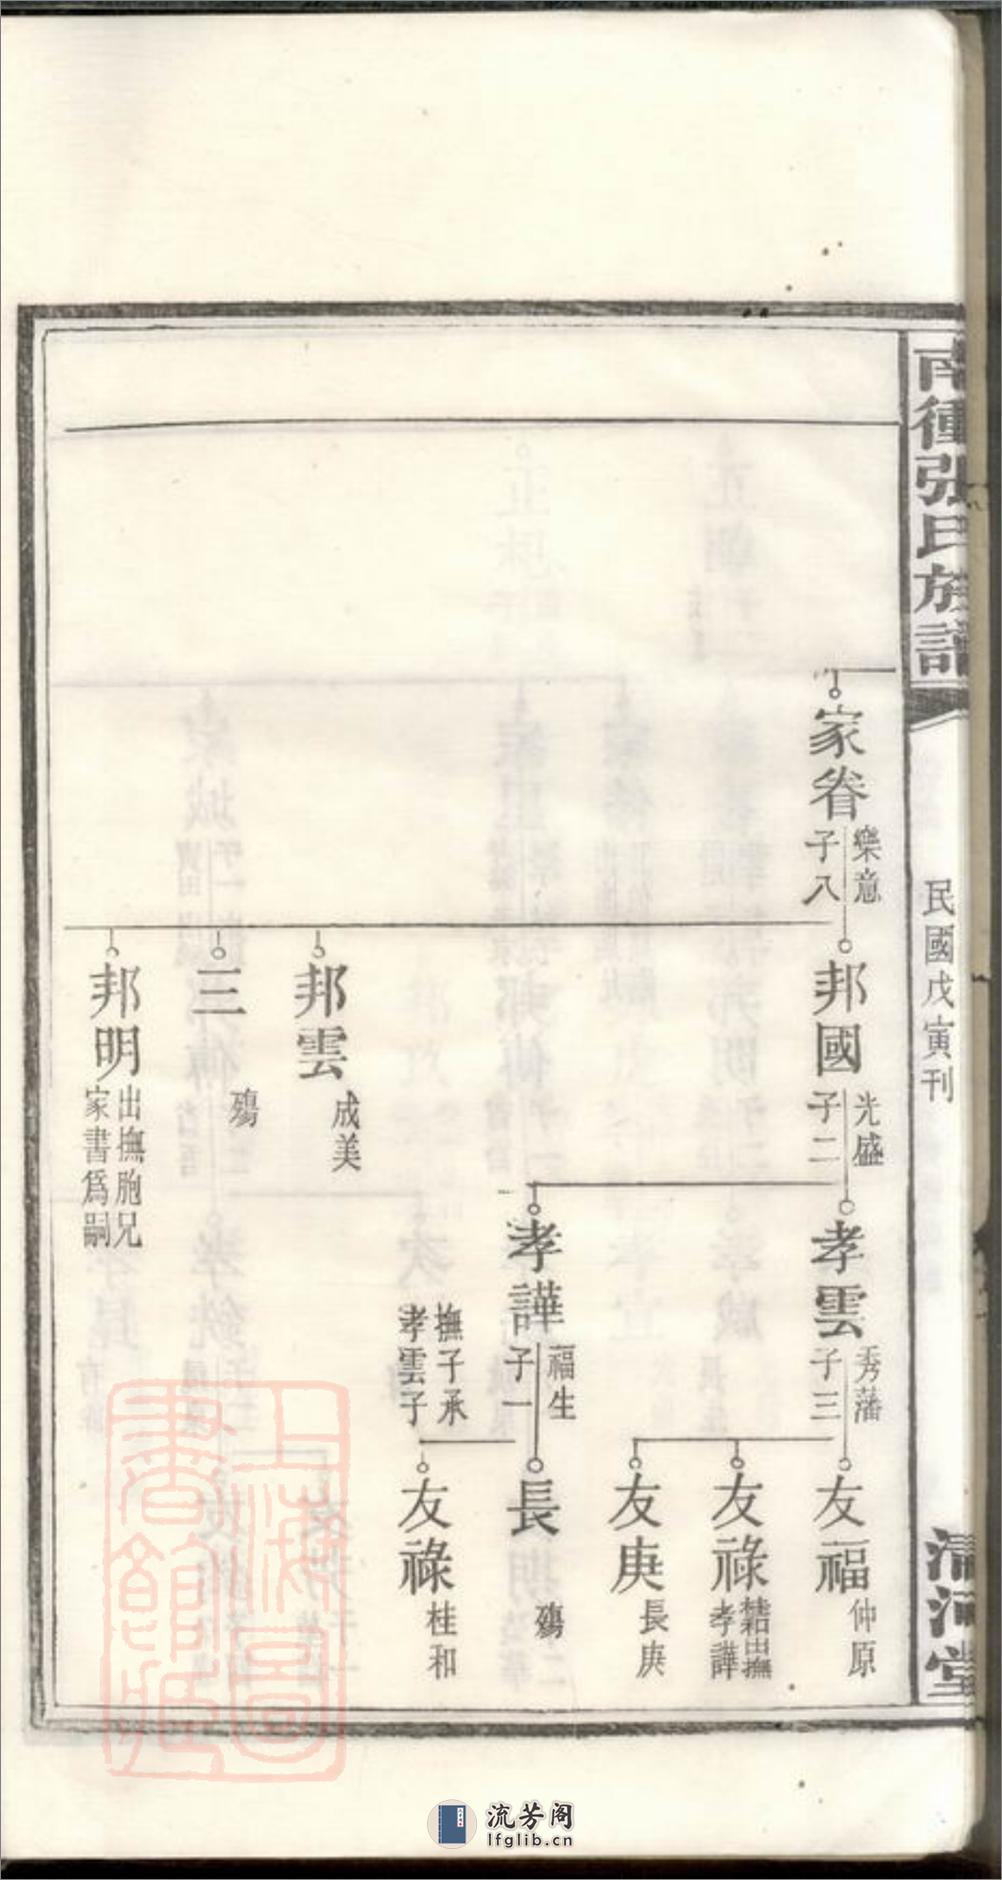 南衝張氏族譜
民國戊寅刊
清河堂
家眷
樂意
子八
邦國
光盛
子二
邦雲
成美
三
殤
邦明
出撫胞兄
家書為嗣
孝雲
秀藩
子三
孝譁
福生
子一
撫子承
孝雲子
友福
仲原
友祿
桂和出撫
孝譁
友庚
長庚
長
殤
友祿
桂和
上海圖
書館藏
流芳阁
lfglib.cn